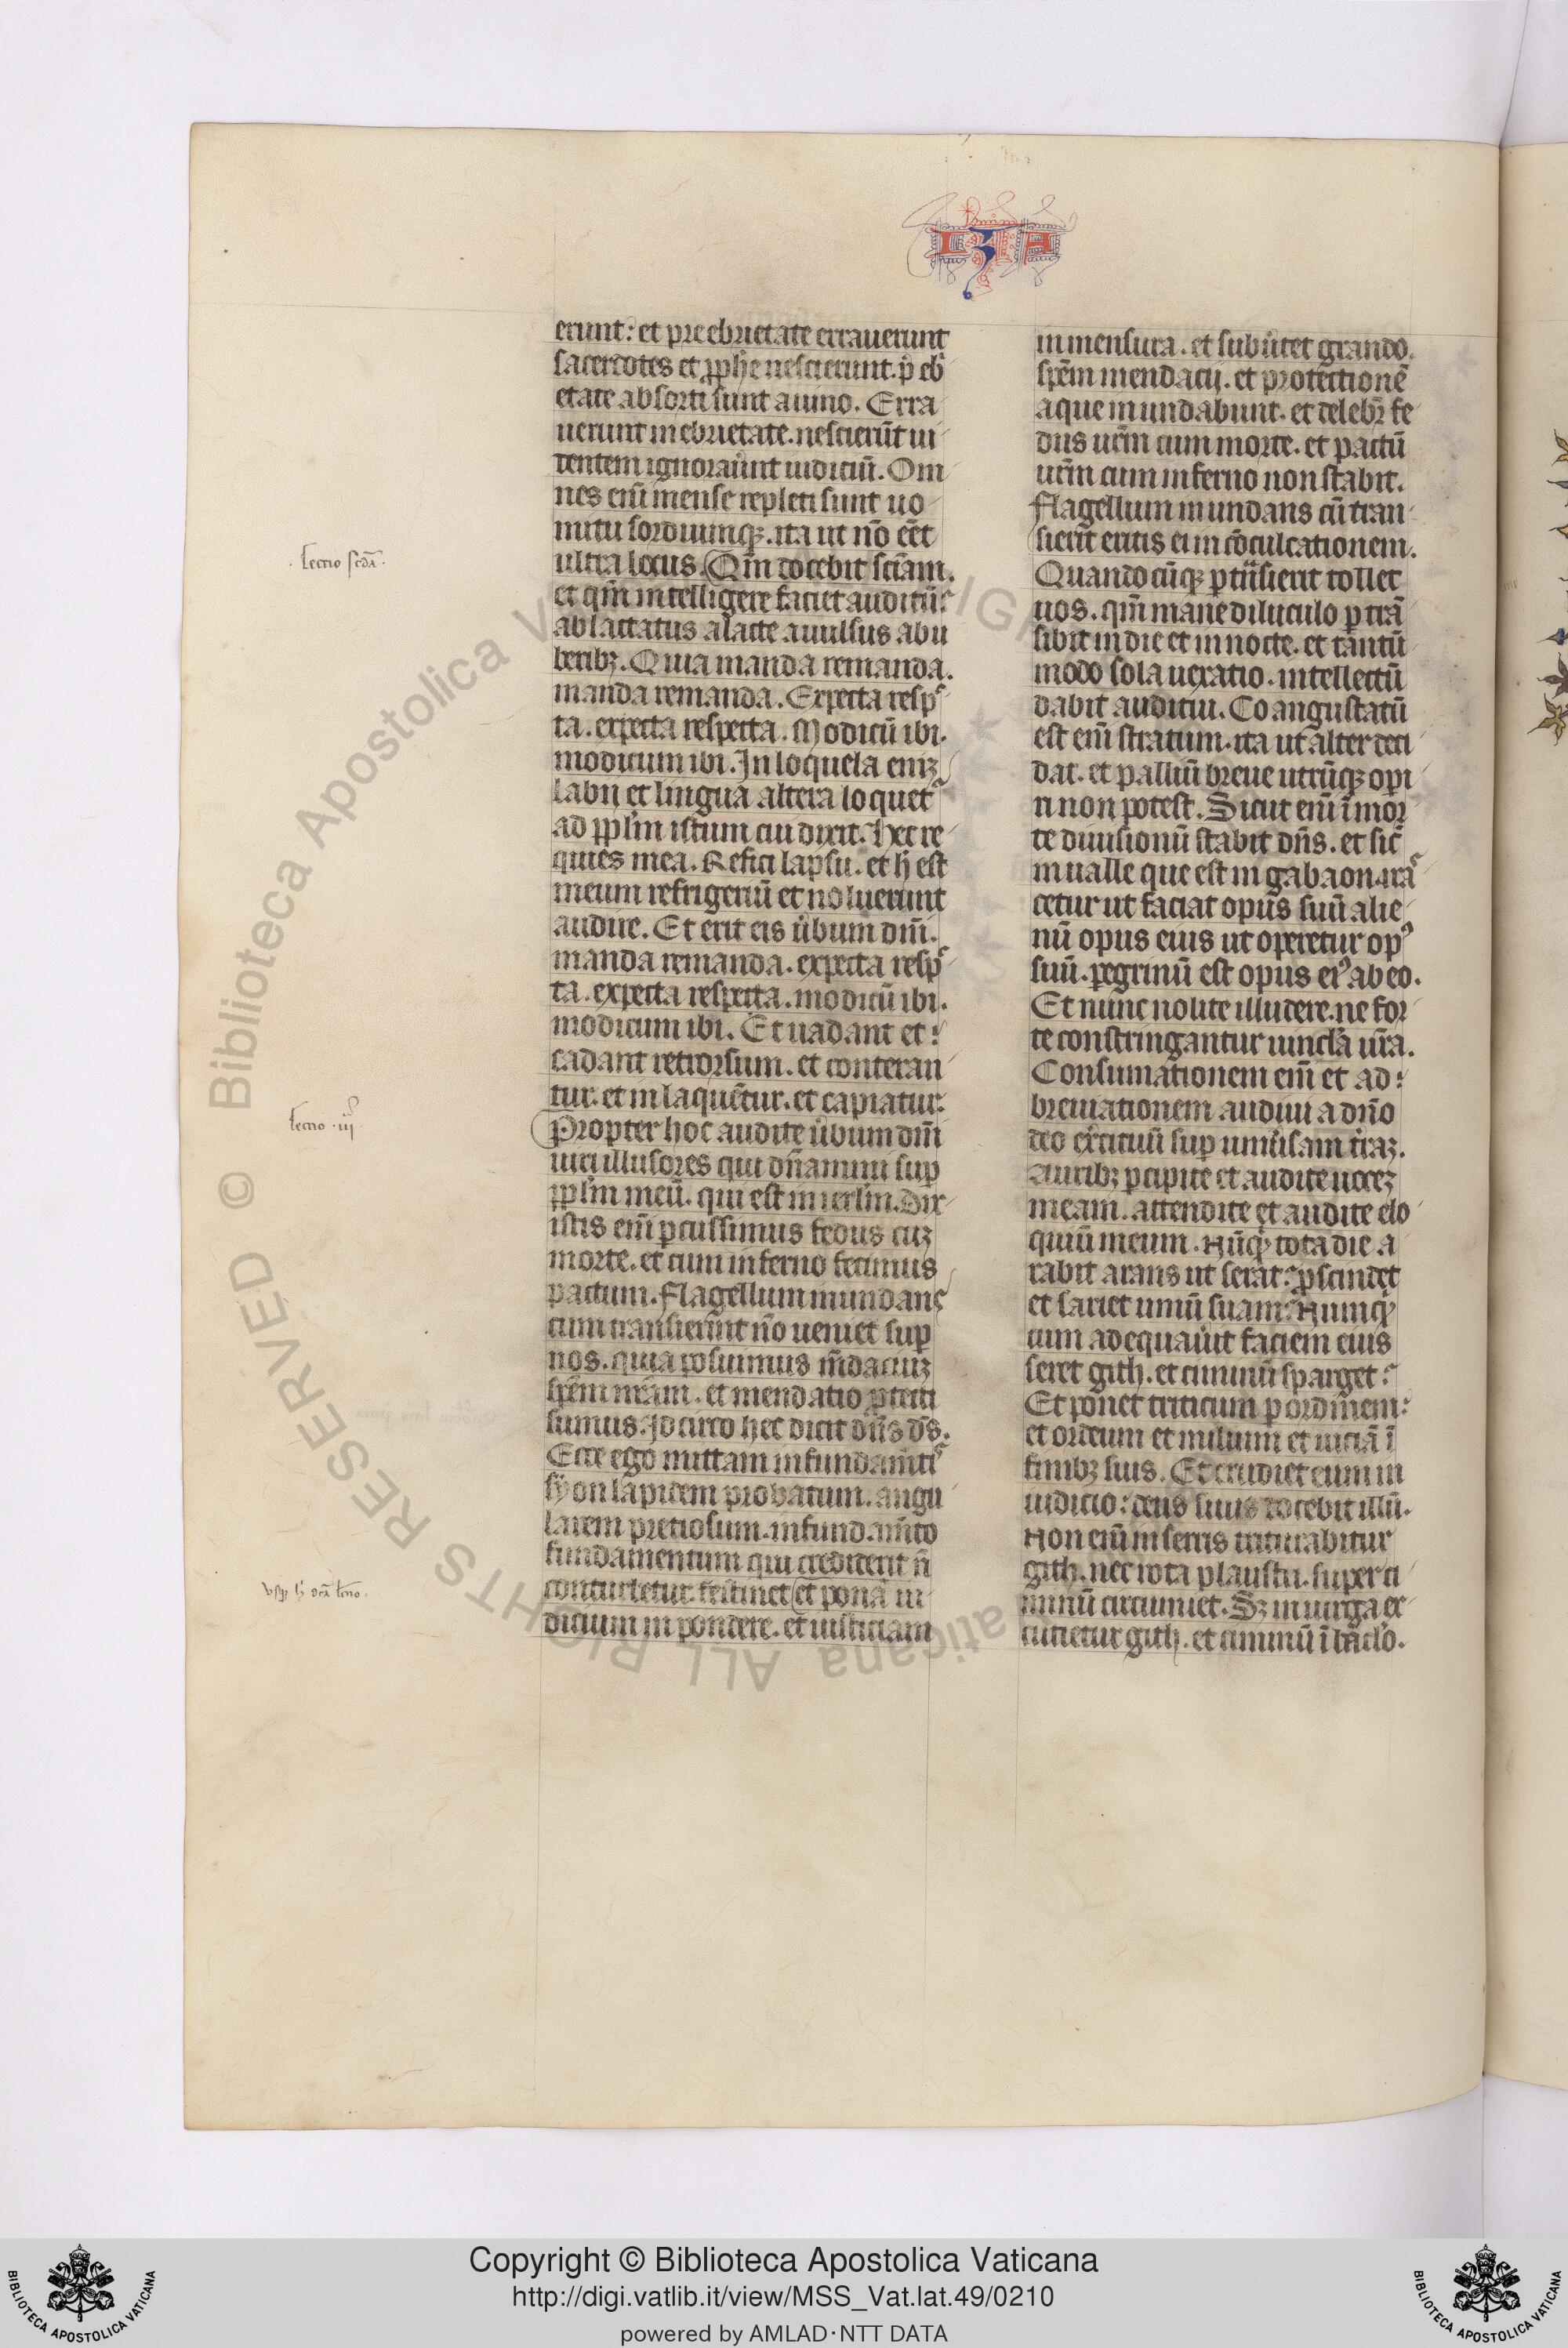 IZA
erunt: et pre ebrietate errauerunt
sacerdotes et ꝓph̄e nescierunt. p̄ eb̾
etate absorti sunt a uino. Erra
uerunt in ebrietate. nescierūt ui
dentem ignorauͥnt iudiciū. Om
nes em̄ mense repleti sunt uo
mitu sordiumqꝫ. ita ut nō eēt
ultra locus. Qm̄ docebit sciam̄.
et qm̄ intelligere faciet auditū:
ablactatus a lacte auulsus ab u
beribꝫ. Quia manda remanda.
manda remanda. Expecta respᶜ
ta. expecta respecta. Modicū ibi.
modicum ibi. In loquela eniꝫ
labij et lingua altera loquet᷑
ad ppl̄m istum cui dixit. Hec re
quies mea. Refici lapsu. et h̄ est
meum refrigeriū et noluerunt
audire. Et erit eis ūbum dnī.
manda remanda. expecta respᶜ
ta. expecta respecta. modicū ibi.
modicum ibi. Et uadant et:
cadant retrorsum. et conteran
tur. et inlaquētur. et capiatur.
Propter hoc audite ūbum dnī
uiri illusores qui dn̄amini suꝑ
ppl̄m meū. qui est in ierlm̄. Dix
istis em̄ ꝑcussimus fedus cuꝫ
morte. et cum inferno fecimus
pactum. Flagellum inundans
cum transierint nō ueniet suꝑ
nos. quia posuimus m̄daciuꝫ
spēm nrām. et mendatio ꝓtecti
sumus. Idcirco hec dicit dn̄s dꝰs.
Ecce ego mittam in fundam̄tiᶜ
syon lapidem probatum. angu
larem pretiosum. in fundam̄to
fundamentum qui crediderit n̄
conturbetur. festinet et ponā iu
dicium in pondere. et iusticiam
in mensura. et subūtet grando.
spēm mendacij. et protectionē
aque inundabunt. et delebr̄ fe
dus ur̄m cum morte. et pactū
ur̄m cum inferno non stabit.
Flagellum inundans cū tran
sierit eritis ei in cōculcationem.
Quandocūqꝫ ꝑtn̄sierit tollet
uos. qm̄ mane diluculo ꝑ trā
sibit in die et in nocte. et tantū
modo sola uexatio. intellectū
dabit auditui. Coangustatū
est em̄ stratum. ita ut alter deci
dat. et palliū breue utrūqꝫ opi
ri non potest. Sicut em̄ ī mon
te diuisionū stabit dn̄s. et sic̄
in ualle que est in gabaon. irāᶜ
cetur ut faciat opus suū alie
nū opus eius ut operetur opꝰ
suū. ꝑegrinū est opus eiꝰ ab eo.
Et nunc nolite illudere. ne for
te constringantur uincla ur̄a.
Consumationem em̄ et ad:
breuiationem audiui a dn̄o
deo ex̄cituū suꝑ uniūsam tr̄aꝫ.
Auribꝫ ꝑcipite et audite uoceꝫ
meam. attendite et audite elo
quiū meum. Nūqͥ tota die a
rabit arans ut serat: ꝓscindet
et sariet umū suam: Numqͥ
cum adequauͥit faciem eius
seret gith. et ciminū sparget:
Et ponet triticum ꝑ ordinem:
et ordeum et milium et uiciā ī
finibꝫ suis. Et erudiet eum in
iudicio: deus suus docebit illū.
Non em̄ in serris triturabitur
gith. nec rota plaustri. super ci
minū circumiet. Sꝫ in uirga ex
cutietur gith. et ciminū ī baclo.
. Lectio scdā.
Lectio . iij
vsqꝫ h̄ dr̄a lectio.
© Biblioteca Apostolica Vaticana ALL RIGHTS RESERVED
Copyright © Biblioteca Apostolica Vaticana
http://digi.vatlib.it/view/MSS_Vat.lat.49/0210
powered by AMLAD·NTT DATA
BIBLIOTECA APOSTOLICA VATICANA
BIBLIOTECA APOSTOLICA VATICANA